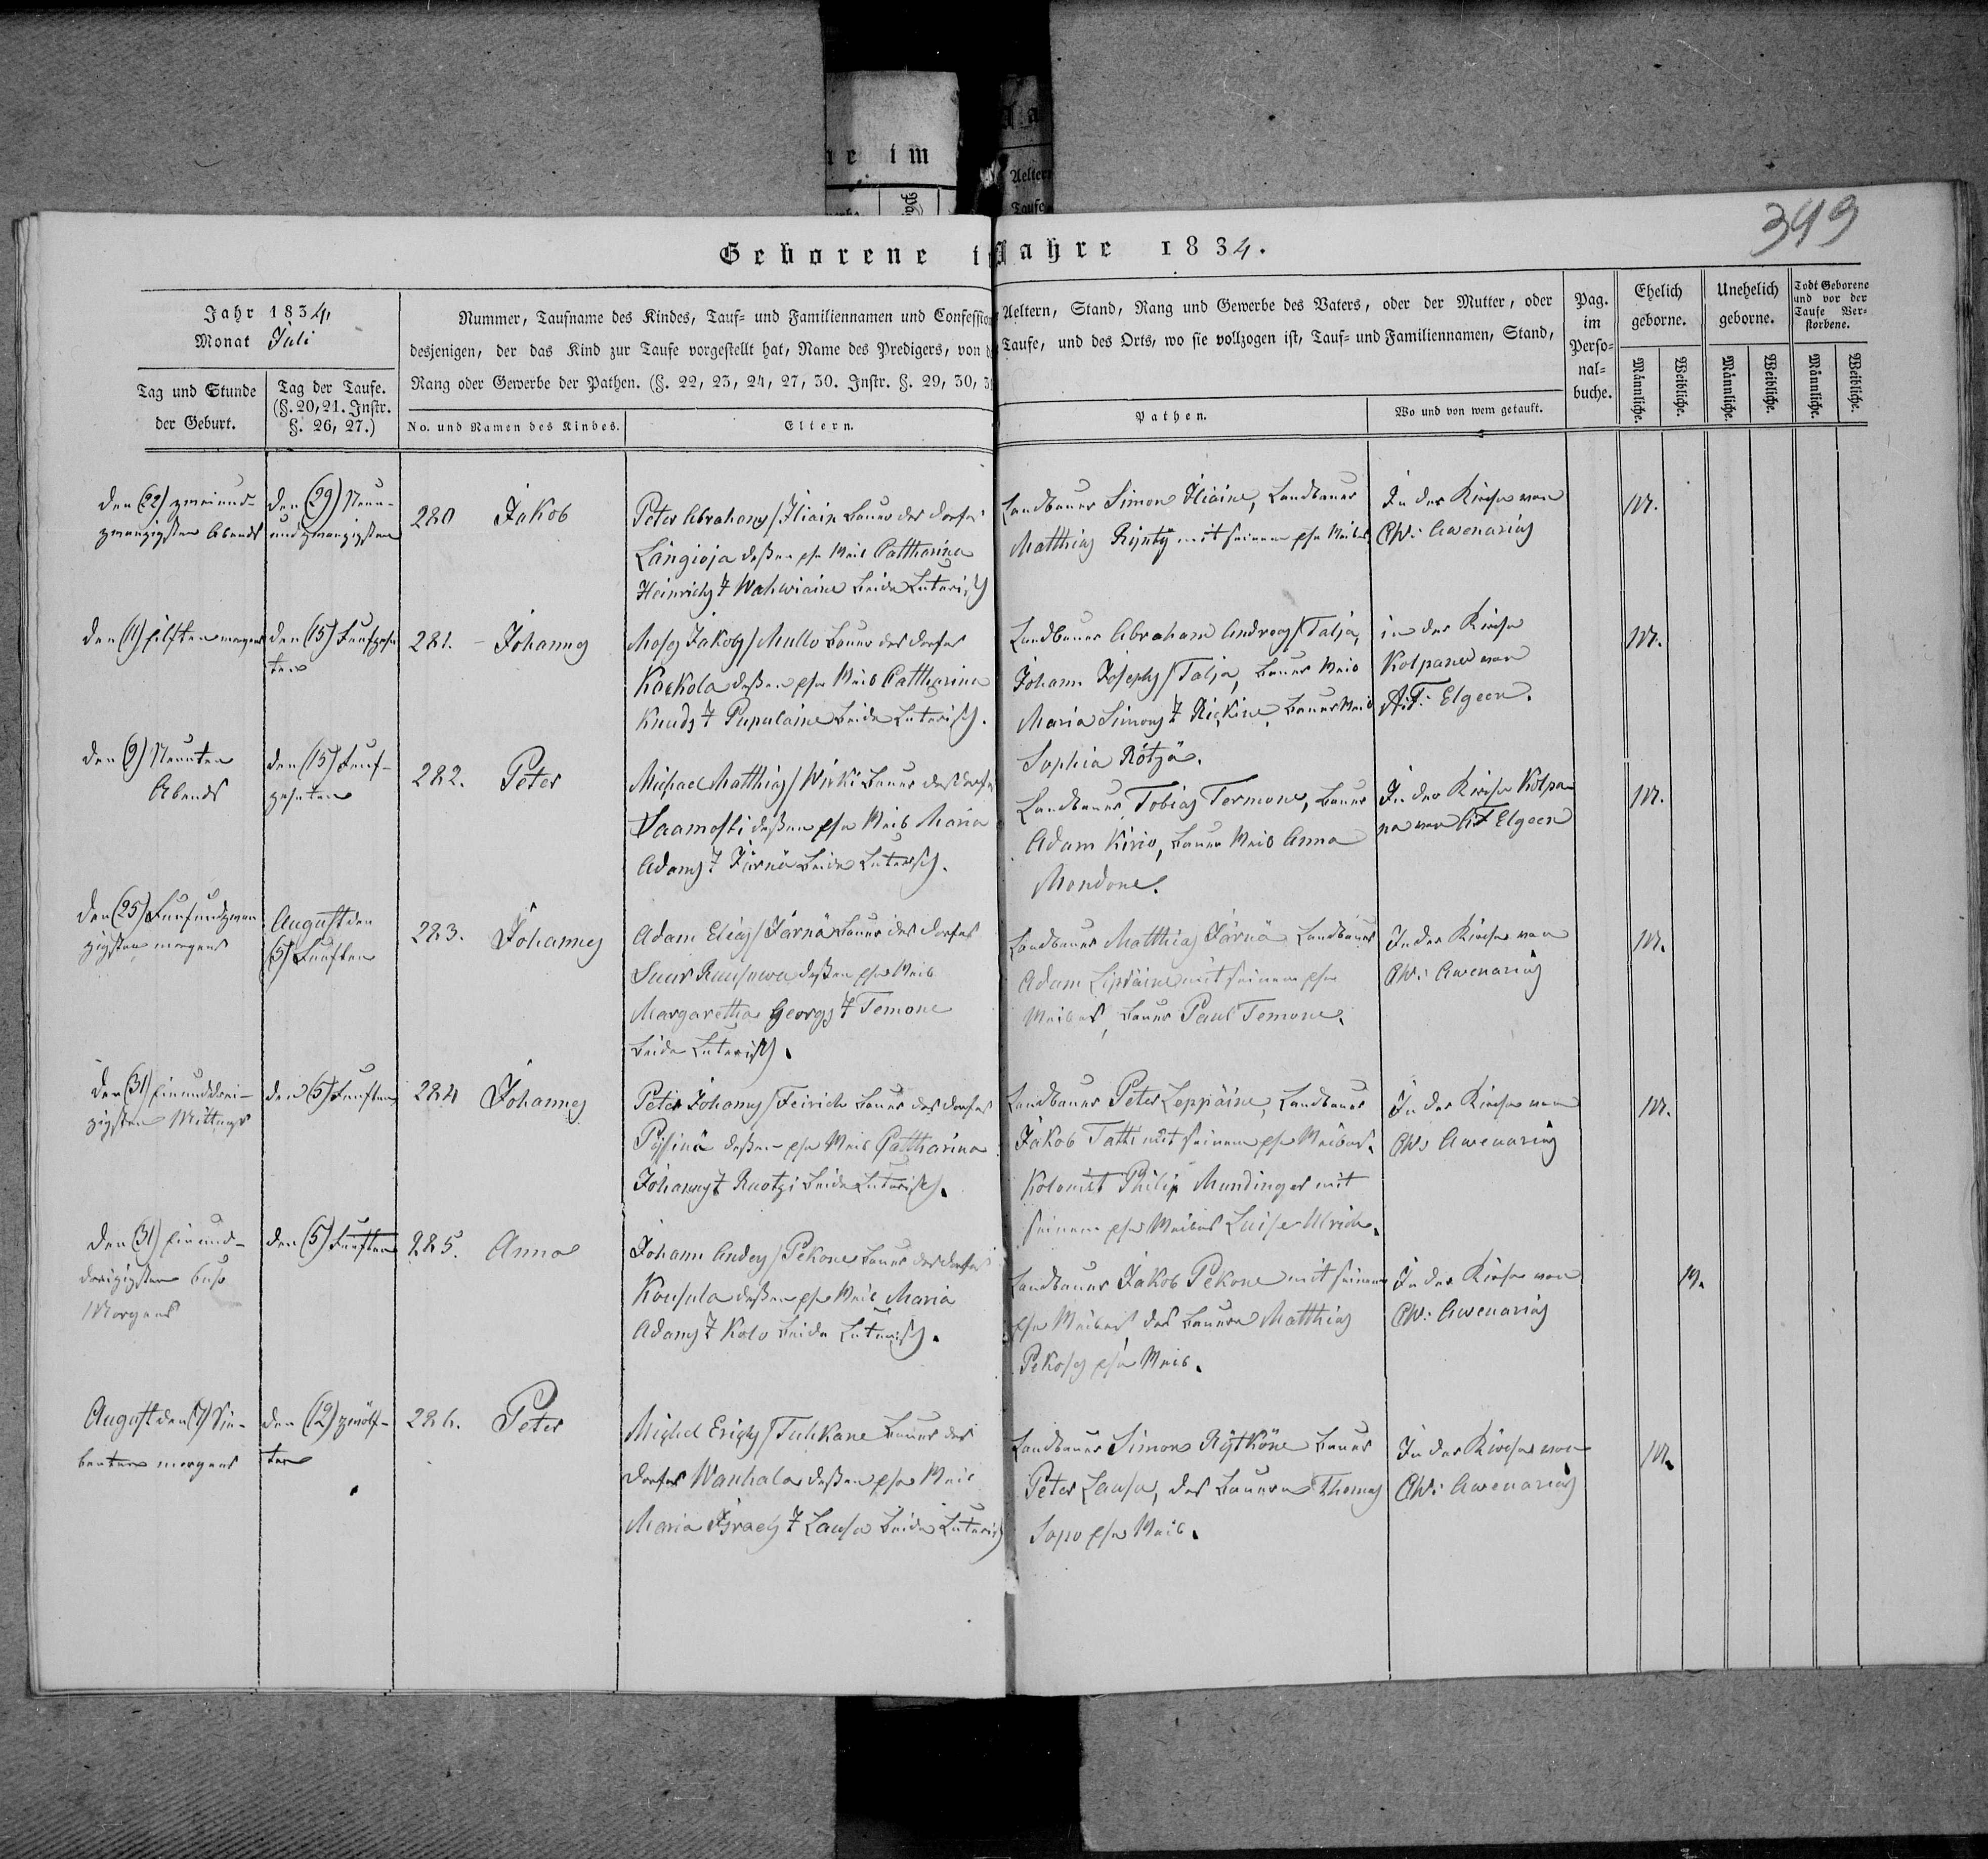 349
Geborene i Jahre 1834.
Jahr 1834,
Monat Juli
Nummer, Taufname des Kindes, Tauf- und Familiennamen und Confession
desjenigen, der das Kind zur Taufe vorgestellt hat, Name des Predigers, von
Rang oder Gewerbe der Pathen. (§. 22, 23, 24, 27, 30. Instr. §. 29, 30,
Tag und Stunde
der Geburt.
Tag der Taufe.
(§. 20, 21. Instr.
§. 26, 27.)
No. und Namen des Kindes.
Eltern.
Aeltern, Stand, Rang und Gewerbe des Vaters, oder der Mutter, oder
Taufe, und des Orts, wo sie vollzogen ist, Tauf- und Familiennamen, Stand,
Pathen.
Wo und von wem getauft.
Pag.
im
Perso-
nal-
buche.
Ehelich
geborne.
Unehelich
geborne.
Todt Geborene
und vor der
Taufe Ver-
storbene.
Männliche.
Weibliche.
Männliche.
Weibliche.
Männliche.
Weibliche.
den (22) zweiund-
zwanzigsten Abends
den (29) Neun-
undzwanzigsten
280 Jakob
Peter Abrahams / Iliain Bauer des Dorfes
Längioja deßen Weib Catharina
Heinrichs Wahwiaine beide Luterisch
Landbauer Simon Iliäine, Landbauer
Matthias Rynty mit seinem Weibe
In der Kirche von
CW: Awenarius
den (11) Eilften morgens
den (15) Funfzehn
ten
281. Johannes
Moses Jakobs / Mullo Bauer des Dorfes
Kockola deßen Weib Catharina
Knuds Pupulaine beide Luterisch.
Landbauer Abraham Andreas / Talja,
Johann Josephs / Talja, Bauer Weib
Maria Simons Rickine, Bauer Weib
Sophia Rötzä.
in der Kirche
Kolpana von
A.F. Elgeen.
den (9) Neunten
Abends
den (15) Funf-
zehnten
282. Peter
Michael Matthias / Wirki Bauer des Dorfes
deßen Weib Maria
Adams Järnä beide Luterisch.
Landbauer Tobias Termone, Bauer
Adam Kirio, Bauer Weib Anna
Mondone.
In der Kirche Kolpa-
na von A.F Elgeen
den (25) Funfundzwan
zigsten morgens
August den
(5) Funften
283. Johannes
Adam Elias / Järnä Bauer des Dorfes
Suur deßen Weib
Margaretha Georgs Temone
beide Luterisch.
Landbauer Matthias Järnä Landbauer
Adam Lipiäine mit seinem
Weibe, Bauer Paul Temone.
In der Kirche von
CW: Awenarius
den (31) Einunddrei-
zigsten Mittags
den (5) Funften
284 Johannes
Peter Johannes / Feirich Bauer des Dorfes
deßen Weib Catharina
Johannes Ruotzi beide Luterisch.
Landbauer Peter Leppäine, Landbauer
Jakob Tatti mit seinem Weibe.
Kolonist Philip Mundinger mit
seinem Weibe Luise Ulrich.
In der Kirche von
CW: Awenarius
den (31) Einund-
dreizigsten
Morgens
den (5) Funften
285. Anna
Johann / Pekone Bauer des Dorfes
Konsula deßen Weib Maria
Adams Kolo beide Luterisch.
Landbauer Jakob Pekone mit seinem
Weibe, des Bauern Matthias
Weib.
In der Kirche von
CW: Awenarius
August den (7) Sie-
benten morgens
den (12) zwölf-
ten
286. Peter
Michel Erichs / Tuhkane Bauer des
Dorfes Wanhala deßen Weib
Maria Israels Lausa beide Luterisch
Landbauer Simon Rytköne Bauer
Peter Lausa, des Bauern Thomas
Sopo Weib.
In der Kirche von
CW: Awenarius